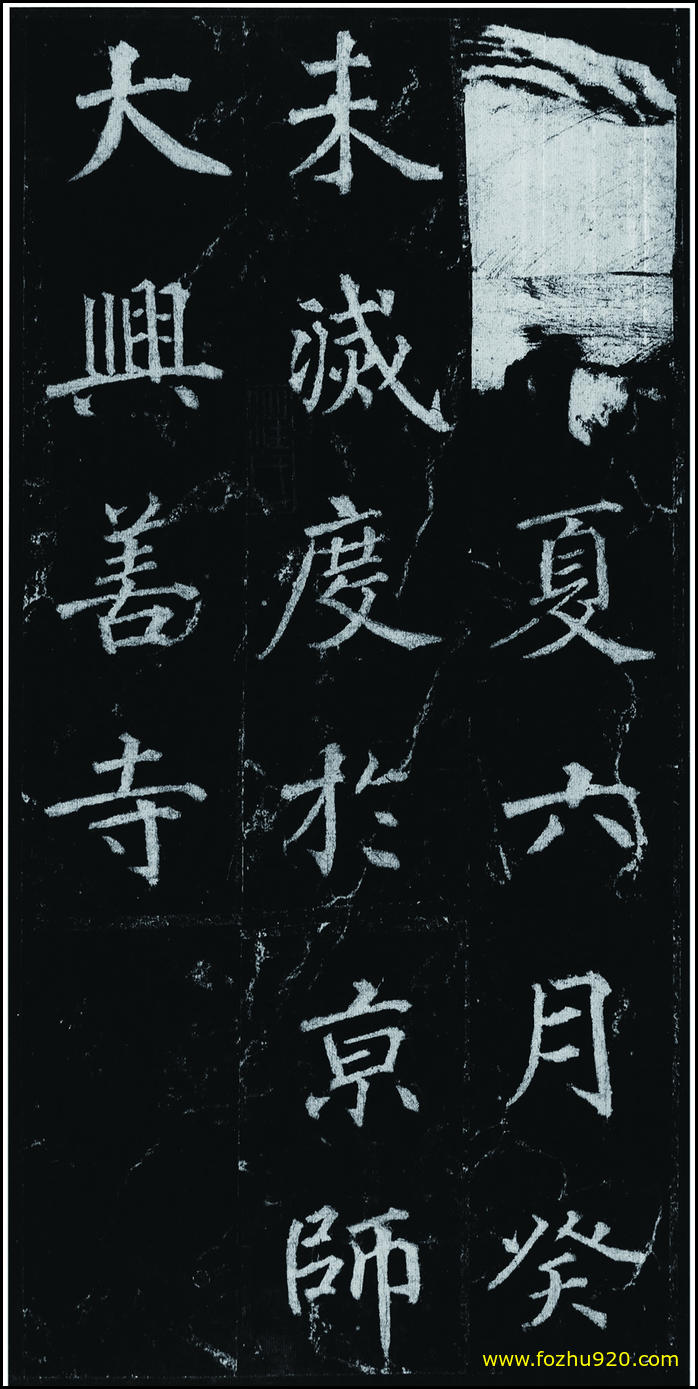 夏六月癸
未滅度於京師
大興善寺
www.fozhu920.com